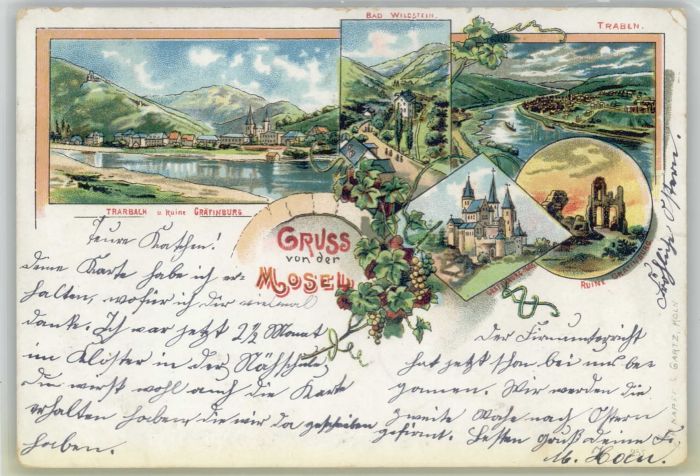 BAD WILDSTEIN.
TRABEN.
TRARBACH u. Ruine GRÄFINBURG
RUINE GRÄFINBURG
GRUSS
von der
MOSEL
Teure Kathen!
deine Karte habe ich er-
halten, wofür ich dir vielmal
danke. Ich war jetzt 2½ Monat
im Klöster in der Nähschule,
du wirst wohl auch die Karte
erhalten haben, die wir da geschrieben
haben.
Der Firmunterricht
hat jetzt schon bei uns be-
gonnen. Wir werden die
zweite Woche nach Ostern
gefirmt. Besten Gruß deine Fr.
M. Hoen.
Fröhliche Ostern.
GARTZ, KÖLN